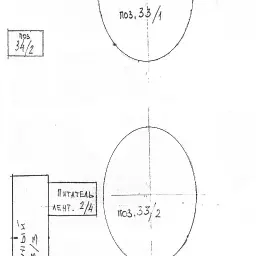 поз. 33/1
поз
34/2
Питатель
лент. 2/4
поз. 33/2